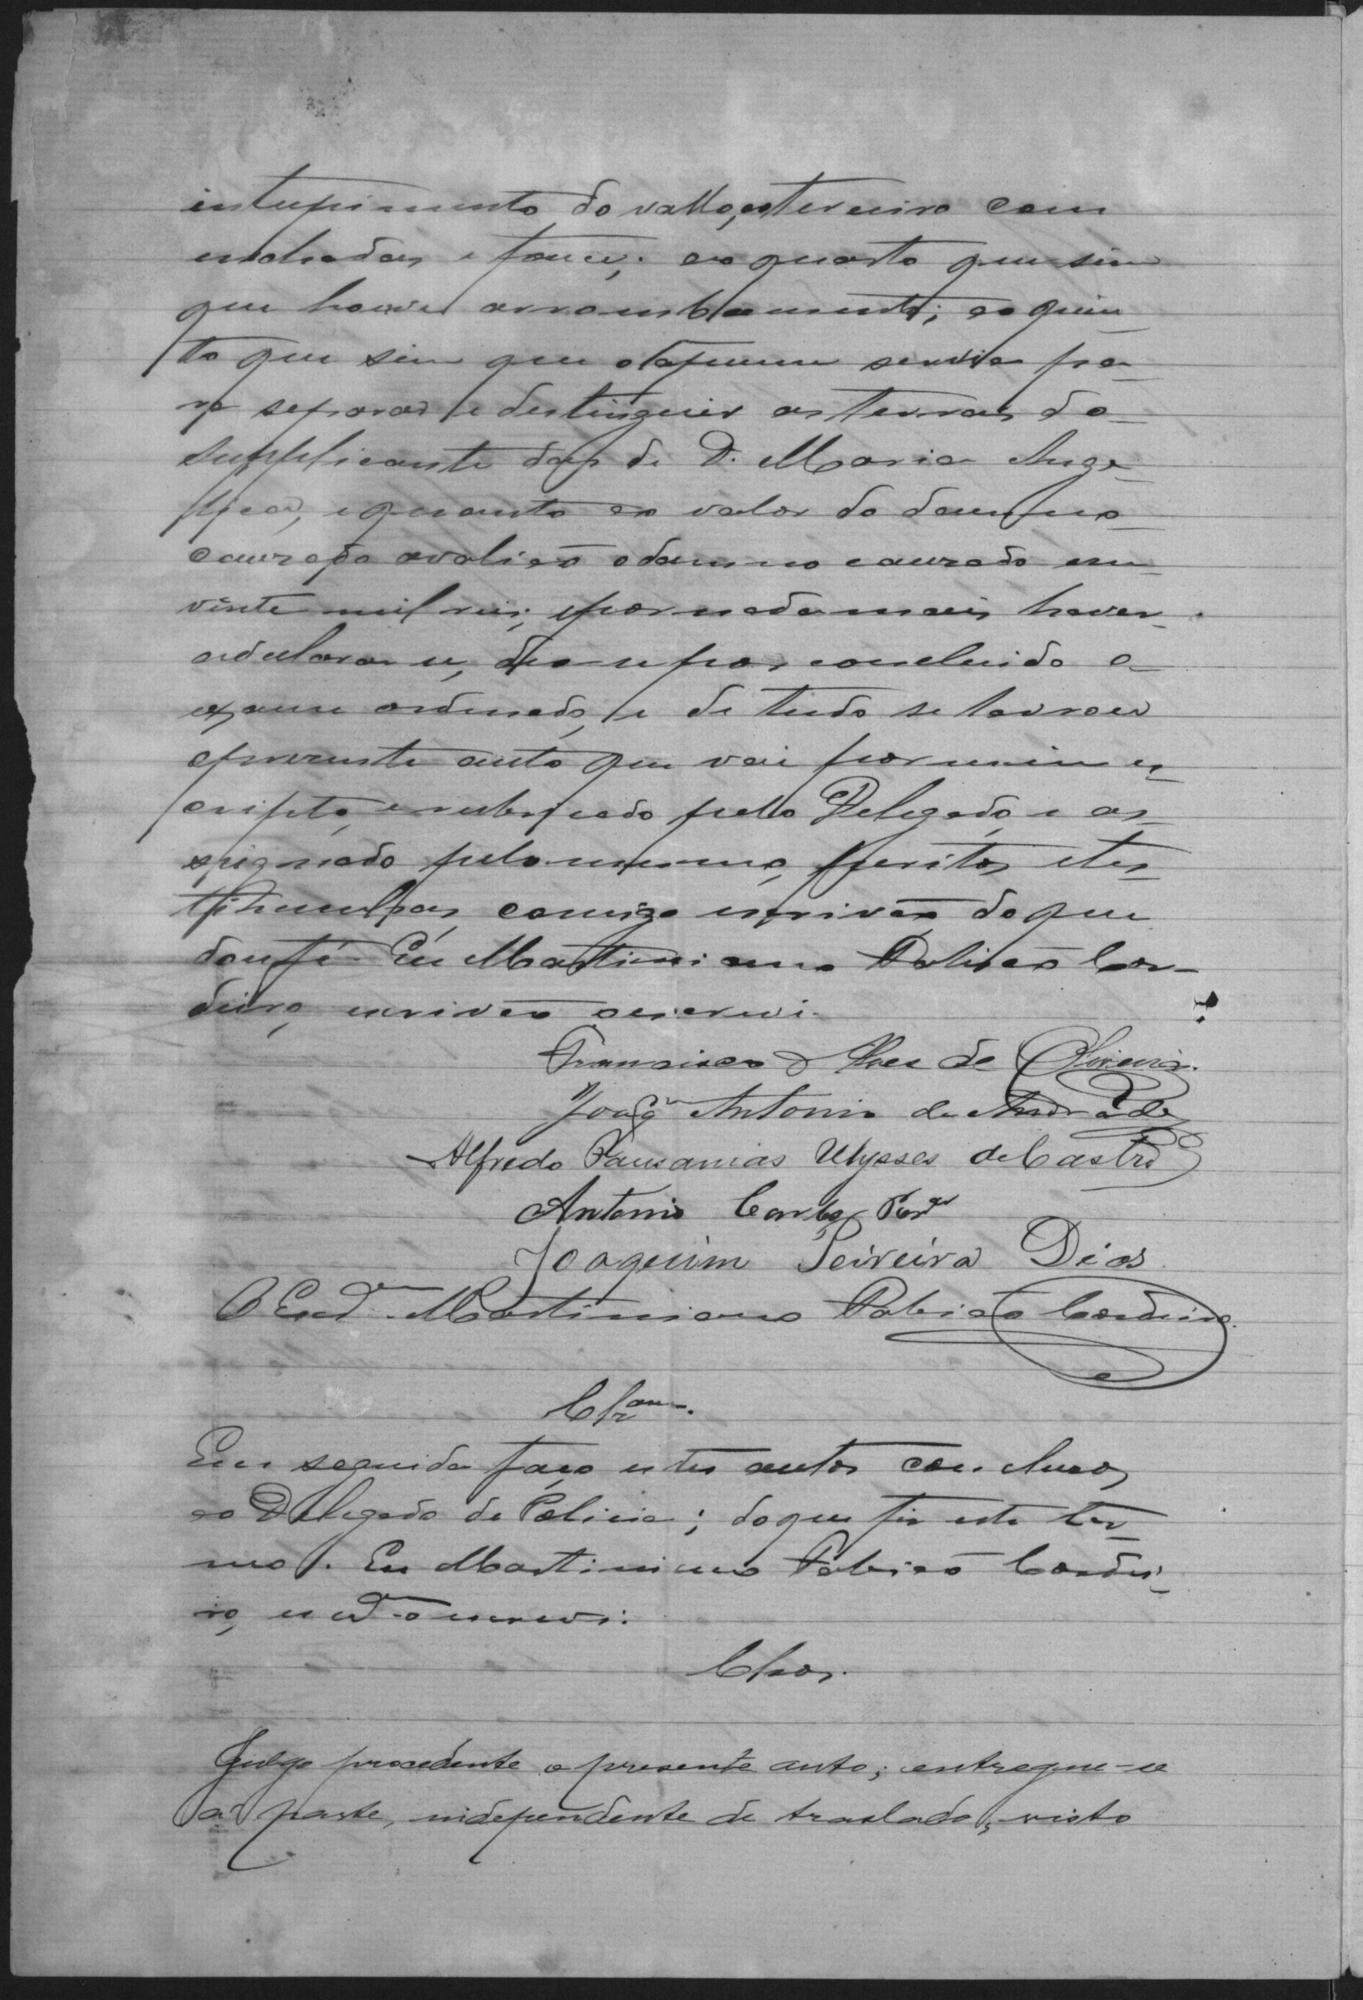 intupimento do vallo, ao terceiro com
enchadas e fouce; ao quarto que sim
que houve arrombamento; ao quin-
to que sim que o tapume servia pa-
ra separar e destinguir as terras do
supplicante das de D. Maria Ange-
lica, e quanto ao valor do damno
causado avalião o damno causado em
vinte mil reis; e por nada mais haver
a declarar se, deu se por concluido o
exame ordenado, e de tudo se lavrou
o presente auto que vai por mim es-
cripto, e rubricado pelo Delegado, e as-
signado pelo mesmo, peritos, e tes-
timunhas, comigo escrivão do que
dou fé. Eu Martiniano Fabião Cor-
deiro, escrivão o escrevi.
Francisco Alves de Oliveira.
Joaqm Antonio de Andrade
Alfredo Pausanias Ulysses de Castro
Antonio Carlos
Joaquim Peireira Dias
O Escr.m Martiniano Fabião Cordeiro.
Clzam.
Em seguida faço estes autos conclusos
ao Delegado de Policia; do que fiz este ter-
mo. Eu Martiniano Fabião Cordei-
ro, o escrevi.
Clsos.
Julgo procedente o presente auto; entregue-se
a parte, independente de traslado, visto